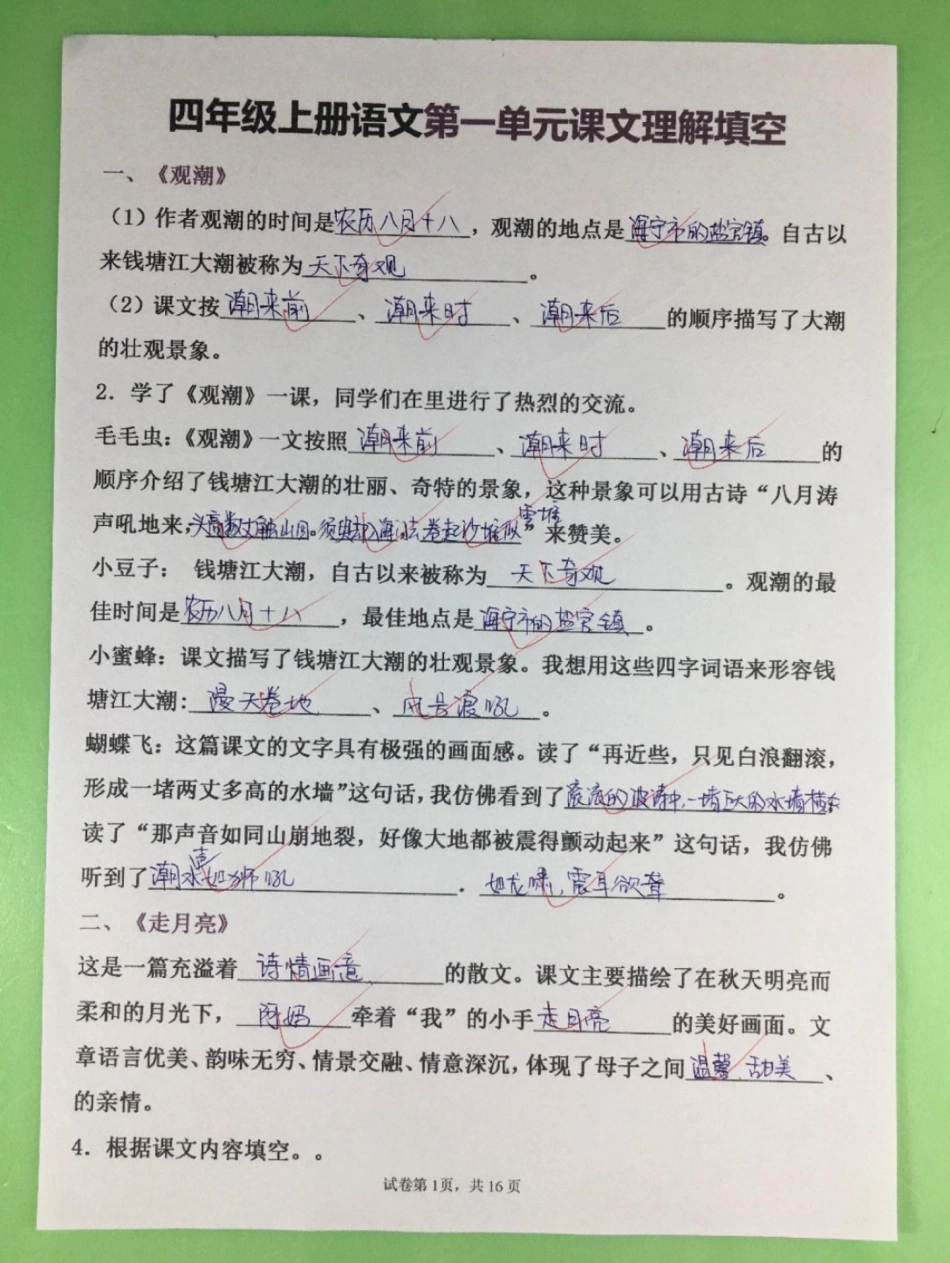 四年级上册语文第一单元课文理解填空
一、《观潮》
（1）作者观潮的时间是农历八月十八，观潮的地点是海宁市的盐官镇。自古以
来钱塘江大潮被称为天下奇观。
（2）课文按潮来前、潮来时、潮来后的顺序描写了大潮
的壮观景象。
2．学了《观潮》一课，同学们在里进行了热烈的交流。
毛毛虫：《观潮》一文按照潮来前、潮来时、潮来后的
顺序介绍了钱塘江大潮的壮丽、奇特的景象，这种景象可以用古诗“八月涛
声吼地来，头高数丈触山回。须臾却入海门去，卷起沙堆似雪堆”来赞美。
小豆子： 钱塘江大潮，自古以来被称为天下奇观。观潮的最
佳时间是农历八月十八，最佳地点是海宁市的盐官镇。
小蜜蜂：课文描写了钱塘江大潮的壮观景象。我想用这些四字词语来形容钱
塘江大潮：漫天卷地、风号浪吼。
蝴蝶飞：这篇课文的文字具有极强的画面感。读了“再近些，只见白浪翻滚，
形成一堵两丈多高的水墙”这句话，我仿佛看到了滚滚的波涛中，一堵巨大的水墙横
读了“那声音如同山崩地裂，好像大地都被震得颤动起来”这句话，我仿佛
听到了潮水声如狮吼．如龙啸，震耳欲聋。
二、《走月亮》
这是一篇充溢着诗情画意的散文。课文主要描绘了在秋天明亮而
柔和的月光下，阿妈牵着“我”的小手走月亮的美好画面。文
章语言优美、韵味无穷、情景交融、情意深沉，体现了母子之间温馨、甜美、
的亲情。
4．根据课文内容填空。。
试卷第1页，共16页